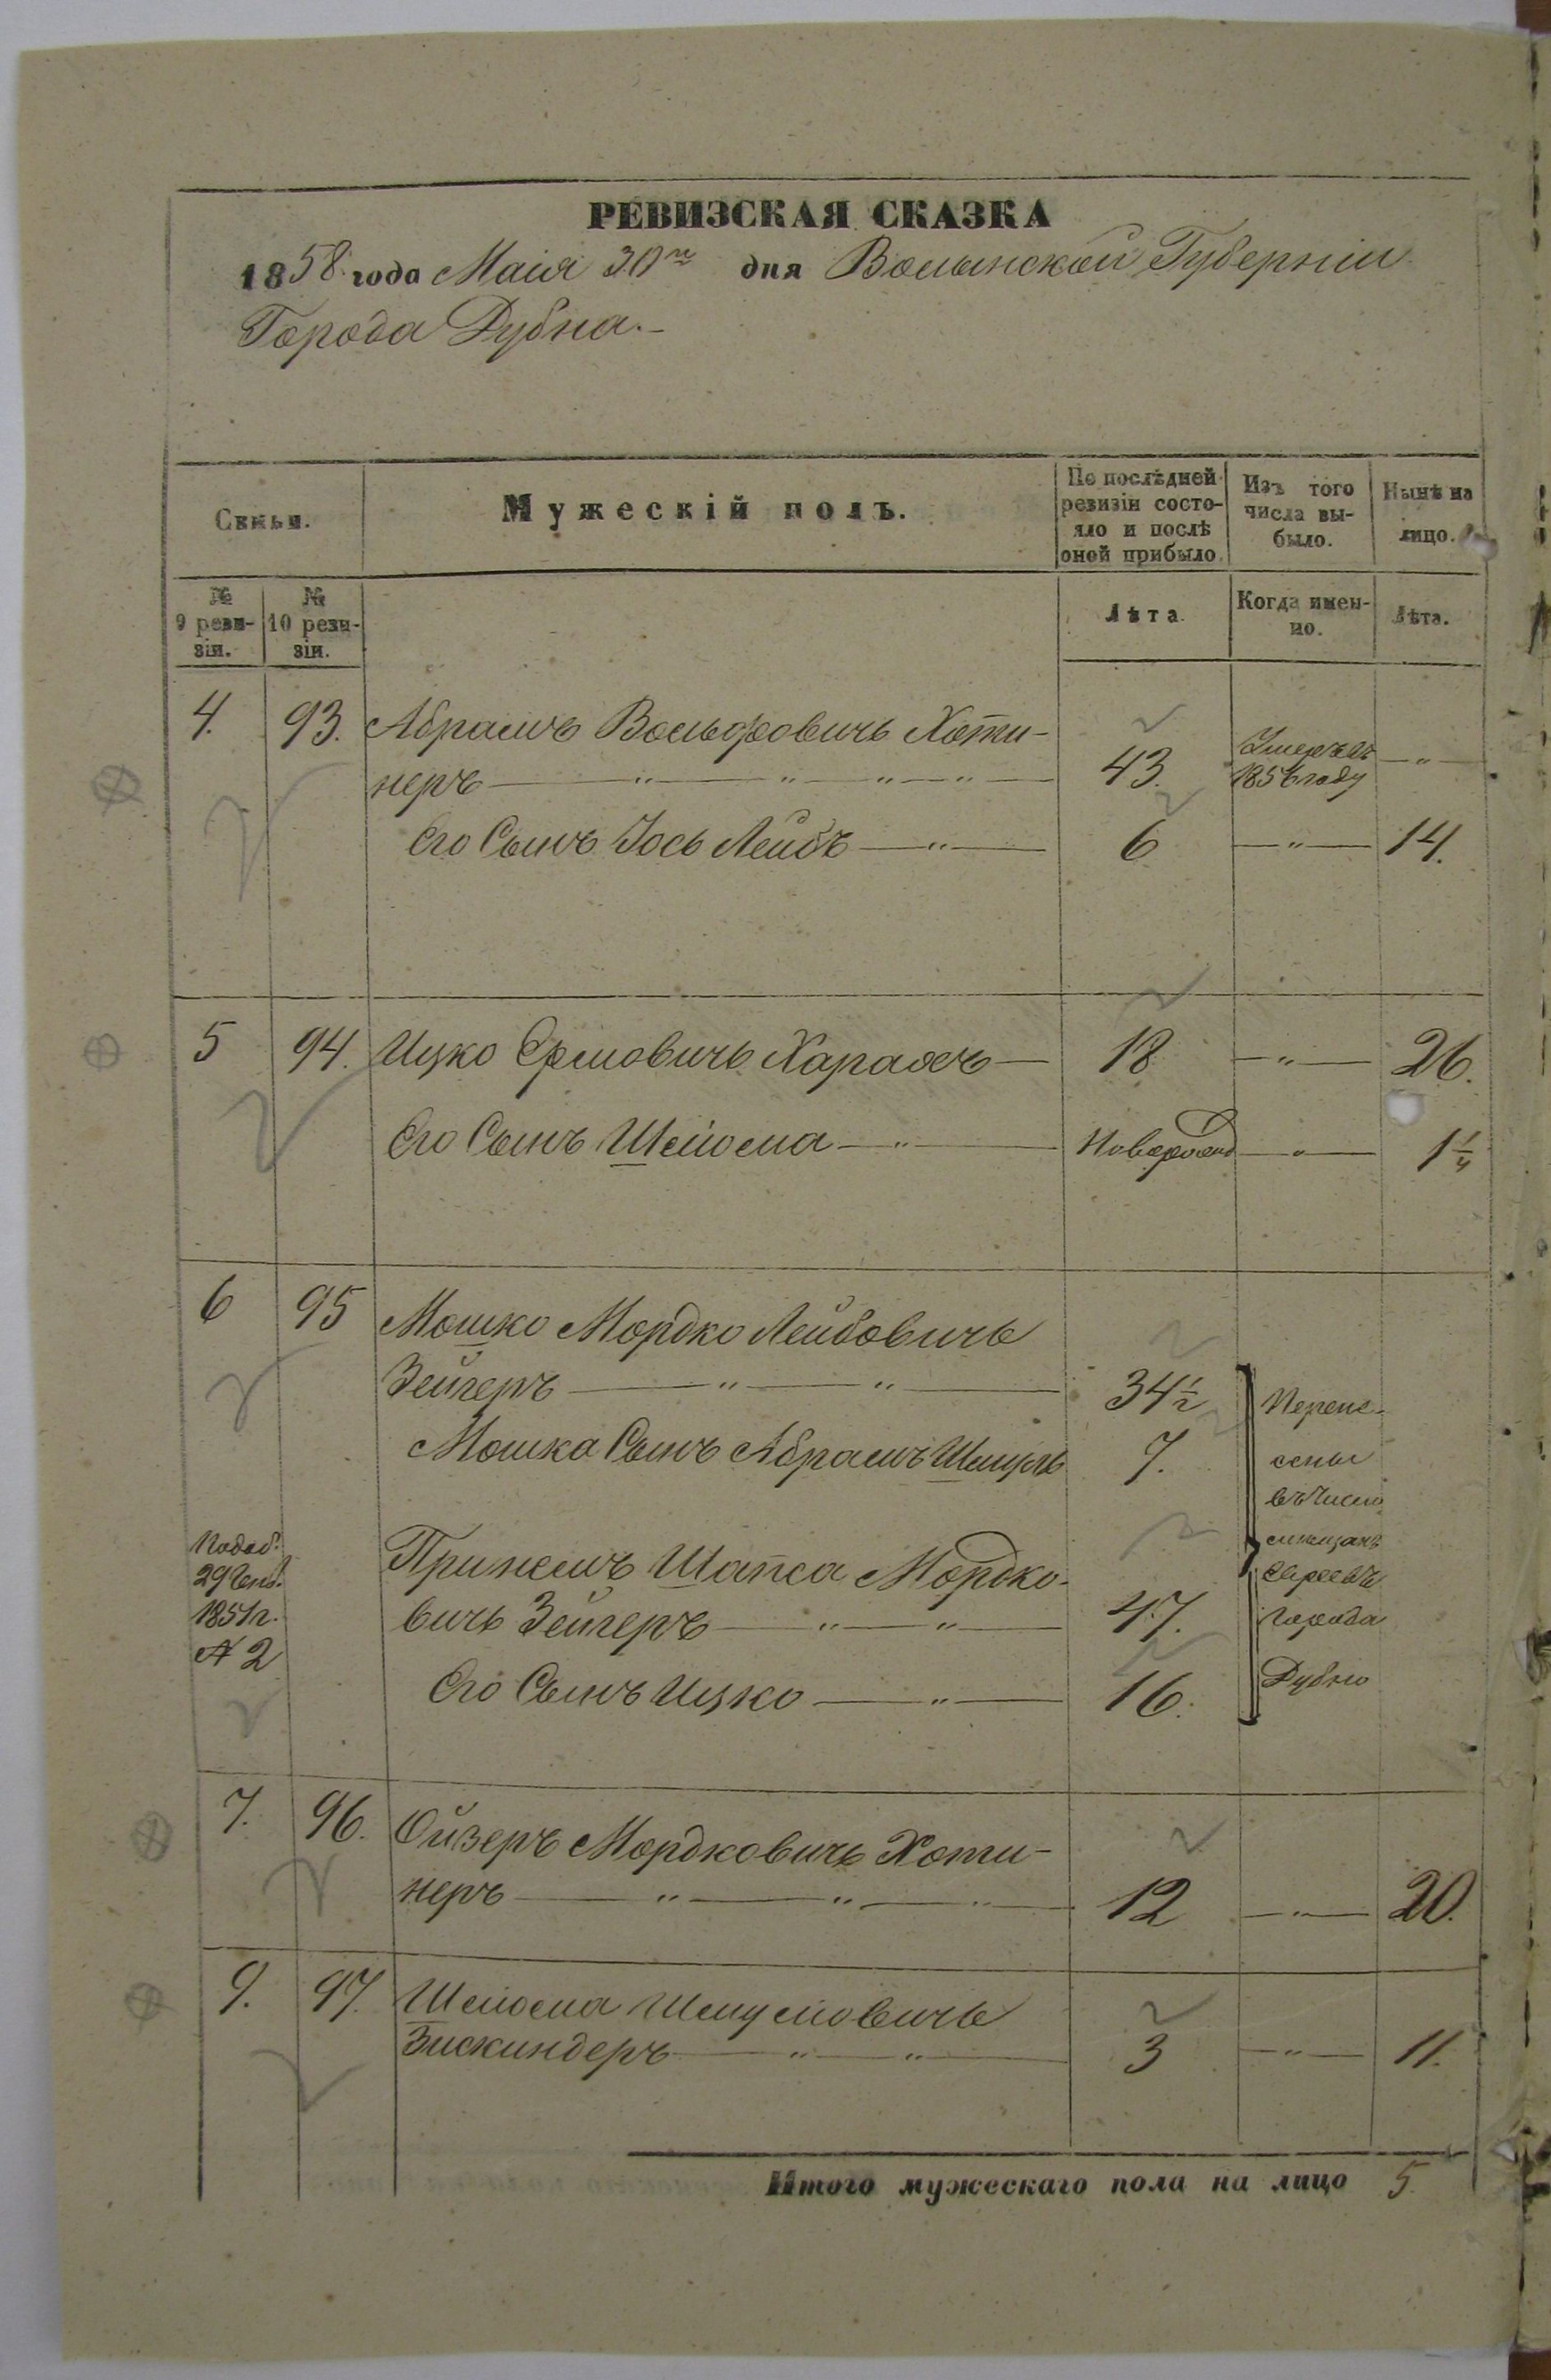 РЕВИЗСКАЯ СКАЗКА
1858 года Маія 30го дня Волынской Губерніи
Города Дубна.
Семьи.
Мужескій полъ.
По послѣдней ревизіи состояло и послѣ оной прибыло.
Изъ того числа выбыло.
Нынѣ на лицо.
№ 9 ревизіи.
№ 10 ревизіи.
Лѣта.
Когда именно.
Лѣта.
4. 93. Абрамъ Вольфовичъ Хоти-
неръ — " — " — " — " — 43. Умеръ въ 1856 году — " —
Его Сынъ Іось Лейбъ — " — 6 — " — 14.
5 94. Ицко Срулiовичъ — 18 — " — 26.
Его Сынъ Шлиома — " — Новорожд — " — 1 1/4
6 95 Мошко Мордко Лейбовичъ
Зейгеръ — " — " — 34 1/2
Мошка Сынъ Абрамъ Шмуль 7.
Перене-
сены
въ число
мѣщанъ
Евреевъ
Города
Дубно
29 Сент.
1851 г.
№ 2
Шапса Мордко-
вичъ Зейгеръ — " — " — 47.
Его Сынъ Ицко — " — 16.
7. 96. Ойзеръ Мордковичъ Хоти-
неръ — " — " — " — 12 — " — 20.
9. 97. Шлиома Шмулiовичъ
Зискиндеръ — " — " — 3 — " — 11.
Итого мужескаго пола на лицо 5